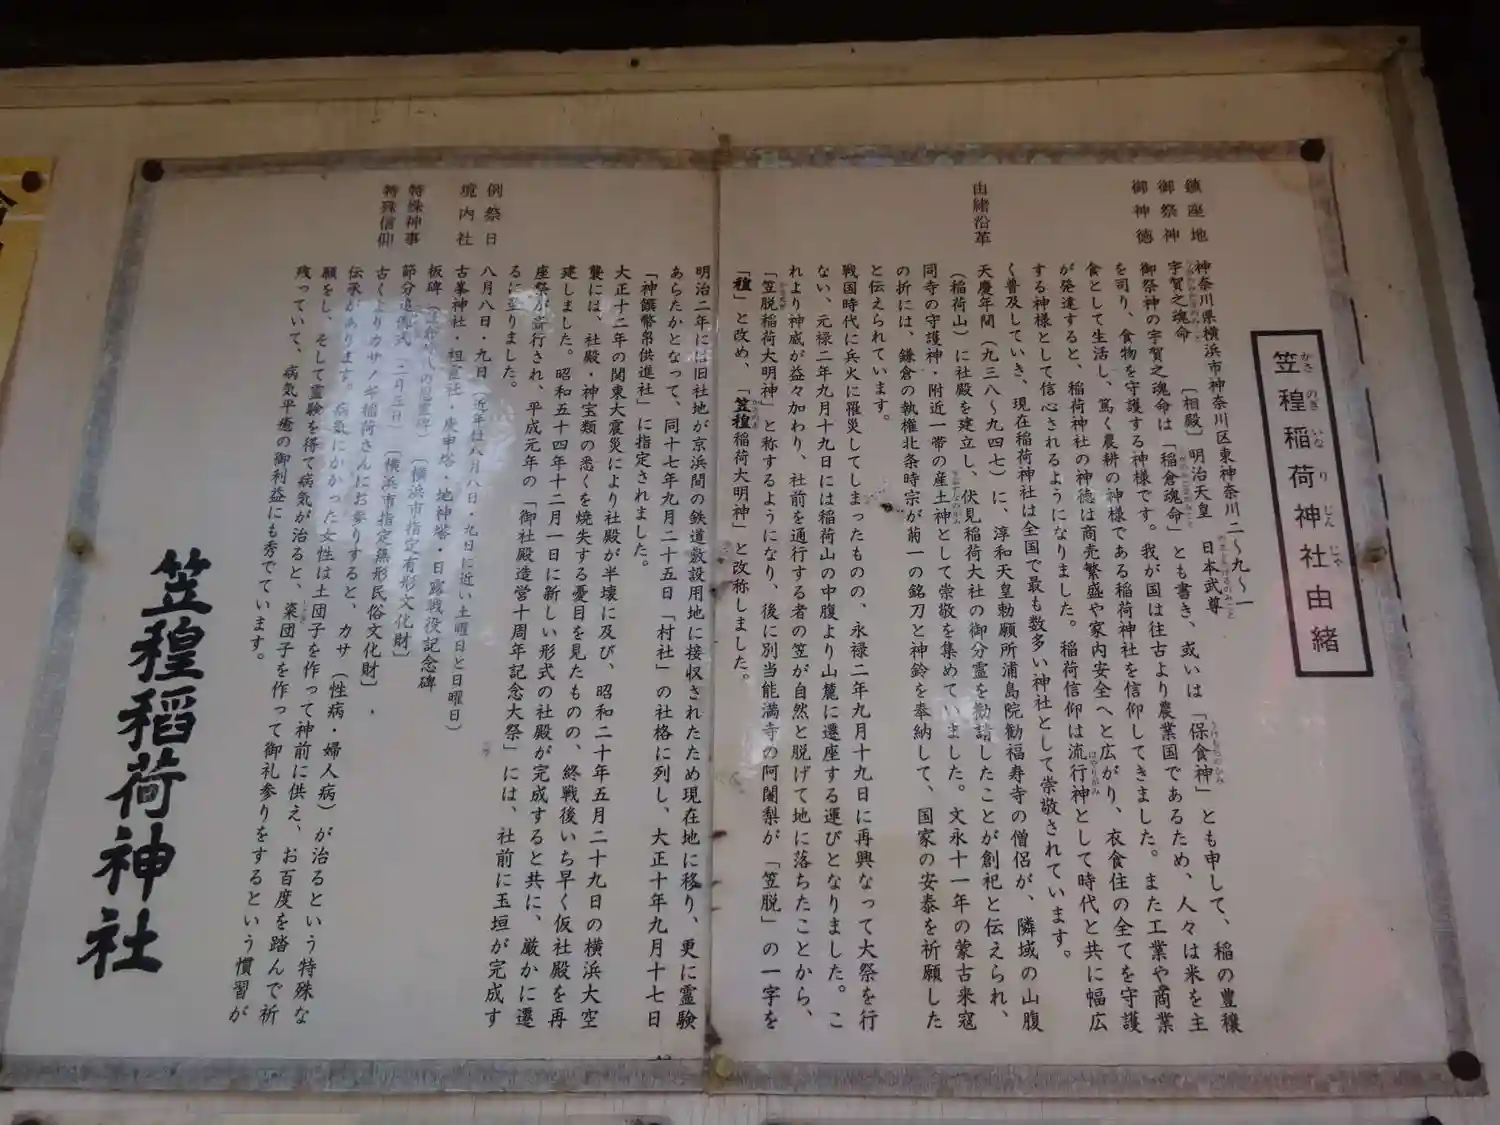 笠䅣稲荷神社由緒
鎮座地 神奈川県横浜市神奈川区東神奈川二〜九〜一
御祭神 宇賀之魂命 〔相殿〕明治天皇 日本武尊
御神徳 御祭神の宇賀之魂命は「稲倉魂命」とも書き、或いは「保食神」とも申して、稲の豊穣
を司り、食物を守護する神様です。我が国は往古より農業国であるため、人々は米を主
食として生活し、篤く農耕の神様である稲荷神社を信仰してきました。また工業や商業
が発達すると、稲荷神社の神徳は商売繁盛や家内安全へと広がり、衣食住の全てを守護
する神様として信心されるようになりました。稲荷信仰は流行神として時代と共に幅広
く普及していき、現在稲荷神社は全国で最も数多い神社として崇敬されています。
由緒沿革 天慶年間（九三八〜九四七）に、淳和天皇勅願所浦島院勧福寿寺の僧侶が、隣域の山腹
（稲荷山）に社殿を建立し、伏見稲荷大社の御分霊を勧請したことが創祀と伝えられ、
同寺の守護神・附近一帯の産土神として崇敬を集めていました。文永十一年の蒙古来寇
の折には、鎌倉の執権北条時宗が菊一の銘刀と神鈴を奉納して、国家の安泰を祈願した
と伝えられています。
戦国時代に兵火に罹災してしまったものの、永禄二年九月十九日に再興なって大祭を行
ない、元禄二年九月十九日には稲荷山の中腹より山麓に遷座する運びとなりました。こ
れより神威が益々加わり、社前を通行する者の笠が自然と脱げて地に落ちたことから、
「笠脱稲荷大明神」と称するようになり、後に別当能満寺の阿闍梨が「笠脱」の一字を
「䅣」と改め、「笠䅣稲荷大明神」と改称しました。
明治二年には旧社地が京浜間の鉄道敷設用地に接収されたため現在地に移り、更に霊験
あらたかとなって、同十七年九月二十五日「村社」の社格に列し、大正十年九月十七日
「神饌幣帛供進社」に指定されました。
大正十二年の関東大震災により社殿が半壊に及び、昭和二十年五月二十九日の横浜大空
襲には、社殿・神宝類の悉くを焼失する憂目を見たものの、終戦後いち早く仮社殿を再
建しました。昭和五十四年十二月一日に新しい形式の社殿が完成すると共に、厳かに遷
座祭が斎行され、平成元年の「御社殿造営十周年記念大祭」には、社前に玉垣が完成す
るに至りました。
例祭日 八月八日・九日（近年は八月八日・九日に近い土曜日と日曜日）
境内社 古峯神社・祖霊社・庚申塔・地神塔・日露戦役記念碑
板碑 〔横浜市指定有形文化財〕
特殊神事 節分追儺式・二月三日 〔横浜市指定無形民俗文化財〕
特殊信仰 古くよりカサノギ稲荷さんにお参りすると、カサ（性病・婦人病）が治るという特殊な
伝承があります。病気にかかった女性は土団子を作って神前に供え、お百度を踏んで祈
願をし、そして霊験を得て病気が治ると、粢団子を作って御礼参りをするという慣習が
残っていて、病気平癒の御利益にも秀でています。
笠䅣稲荷神社